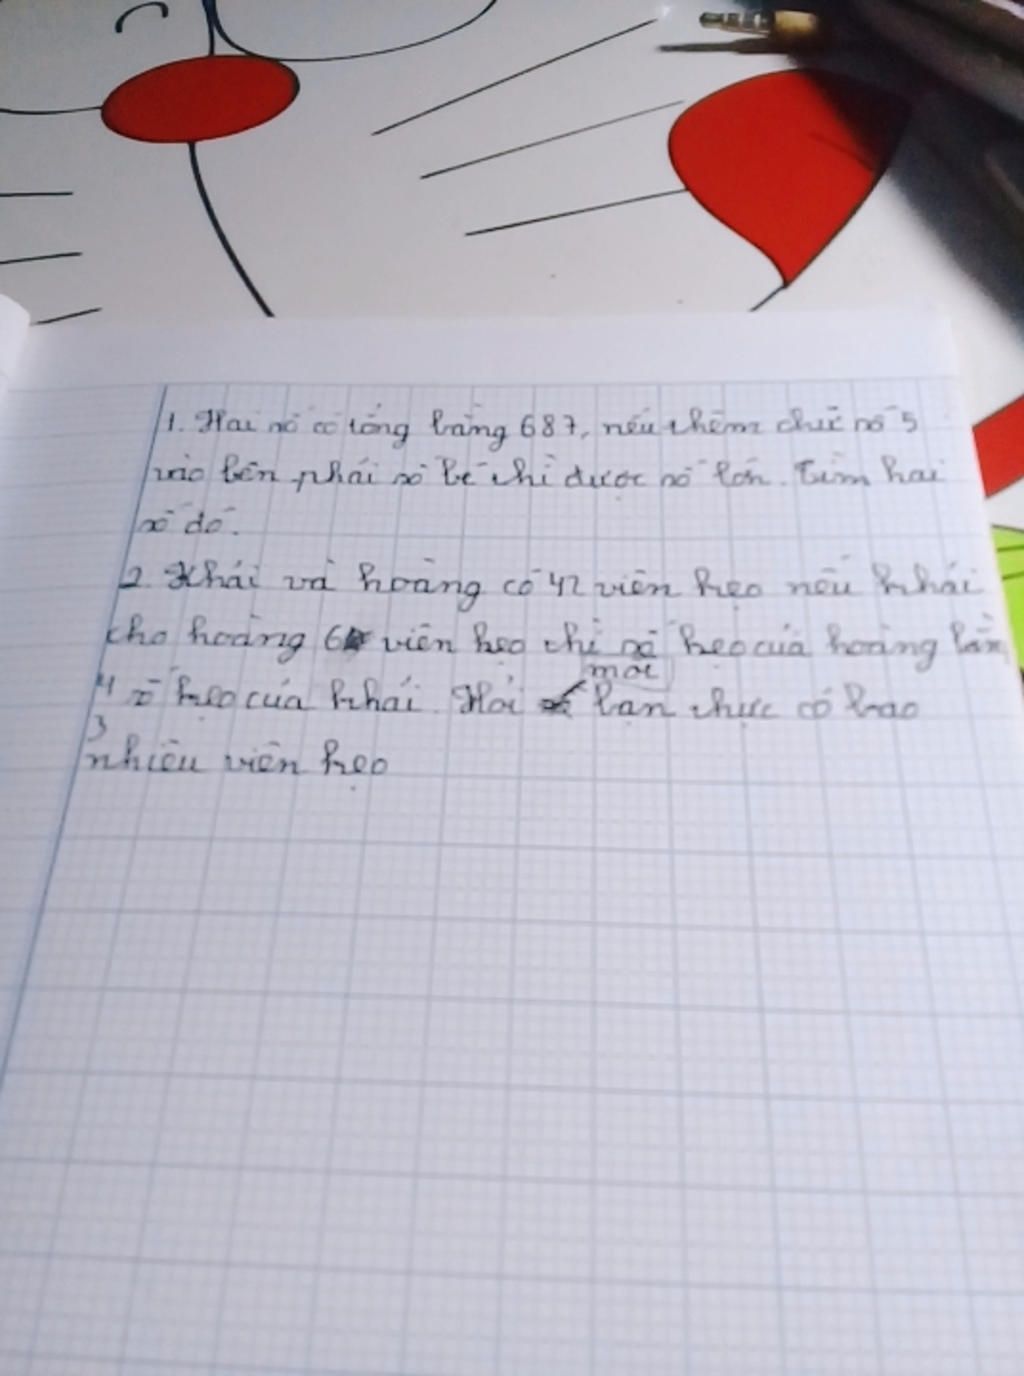 1. Hai số có tổng bằng 687, nếu thêm chữ số 5
vào bên phải số bé thì được số lớn. Tìm hai
số đó.
2. Khái và hoàng có 42 viên kẹo nếu khái
cho hoàng 6 viên kẹo thì số kẹo của hoàng bằng
4/3 số kẹo của khái. Hỏi mỗi bạn thực có bao
nhiêu viên kẹo